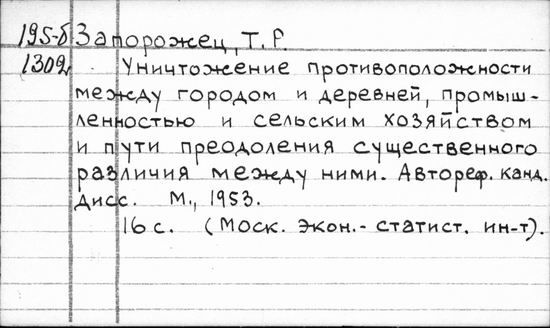 195-б Запорожец, Т. Р.
1302 Уничтожение противоположности
между городом и деревней, промыш-
ленностью и сельским хозяйством
и пути преодоления существенного
различия между ними. Автореф. канд.
дисс. М., 1953.
16 с. (Моск. экон.- статист. ин-т).